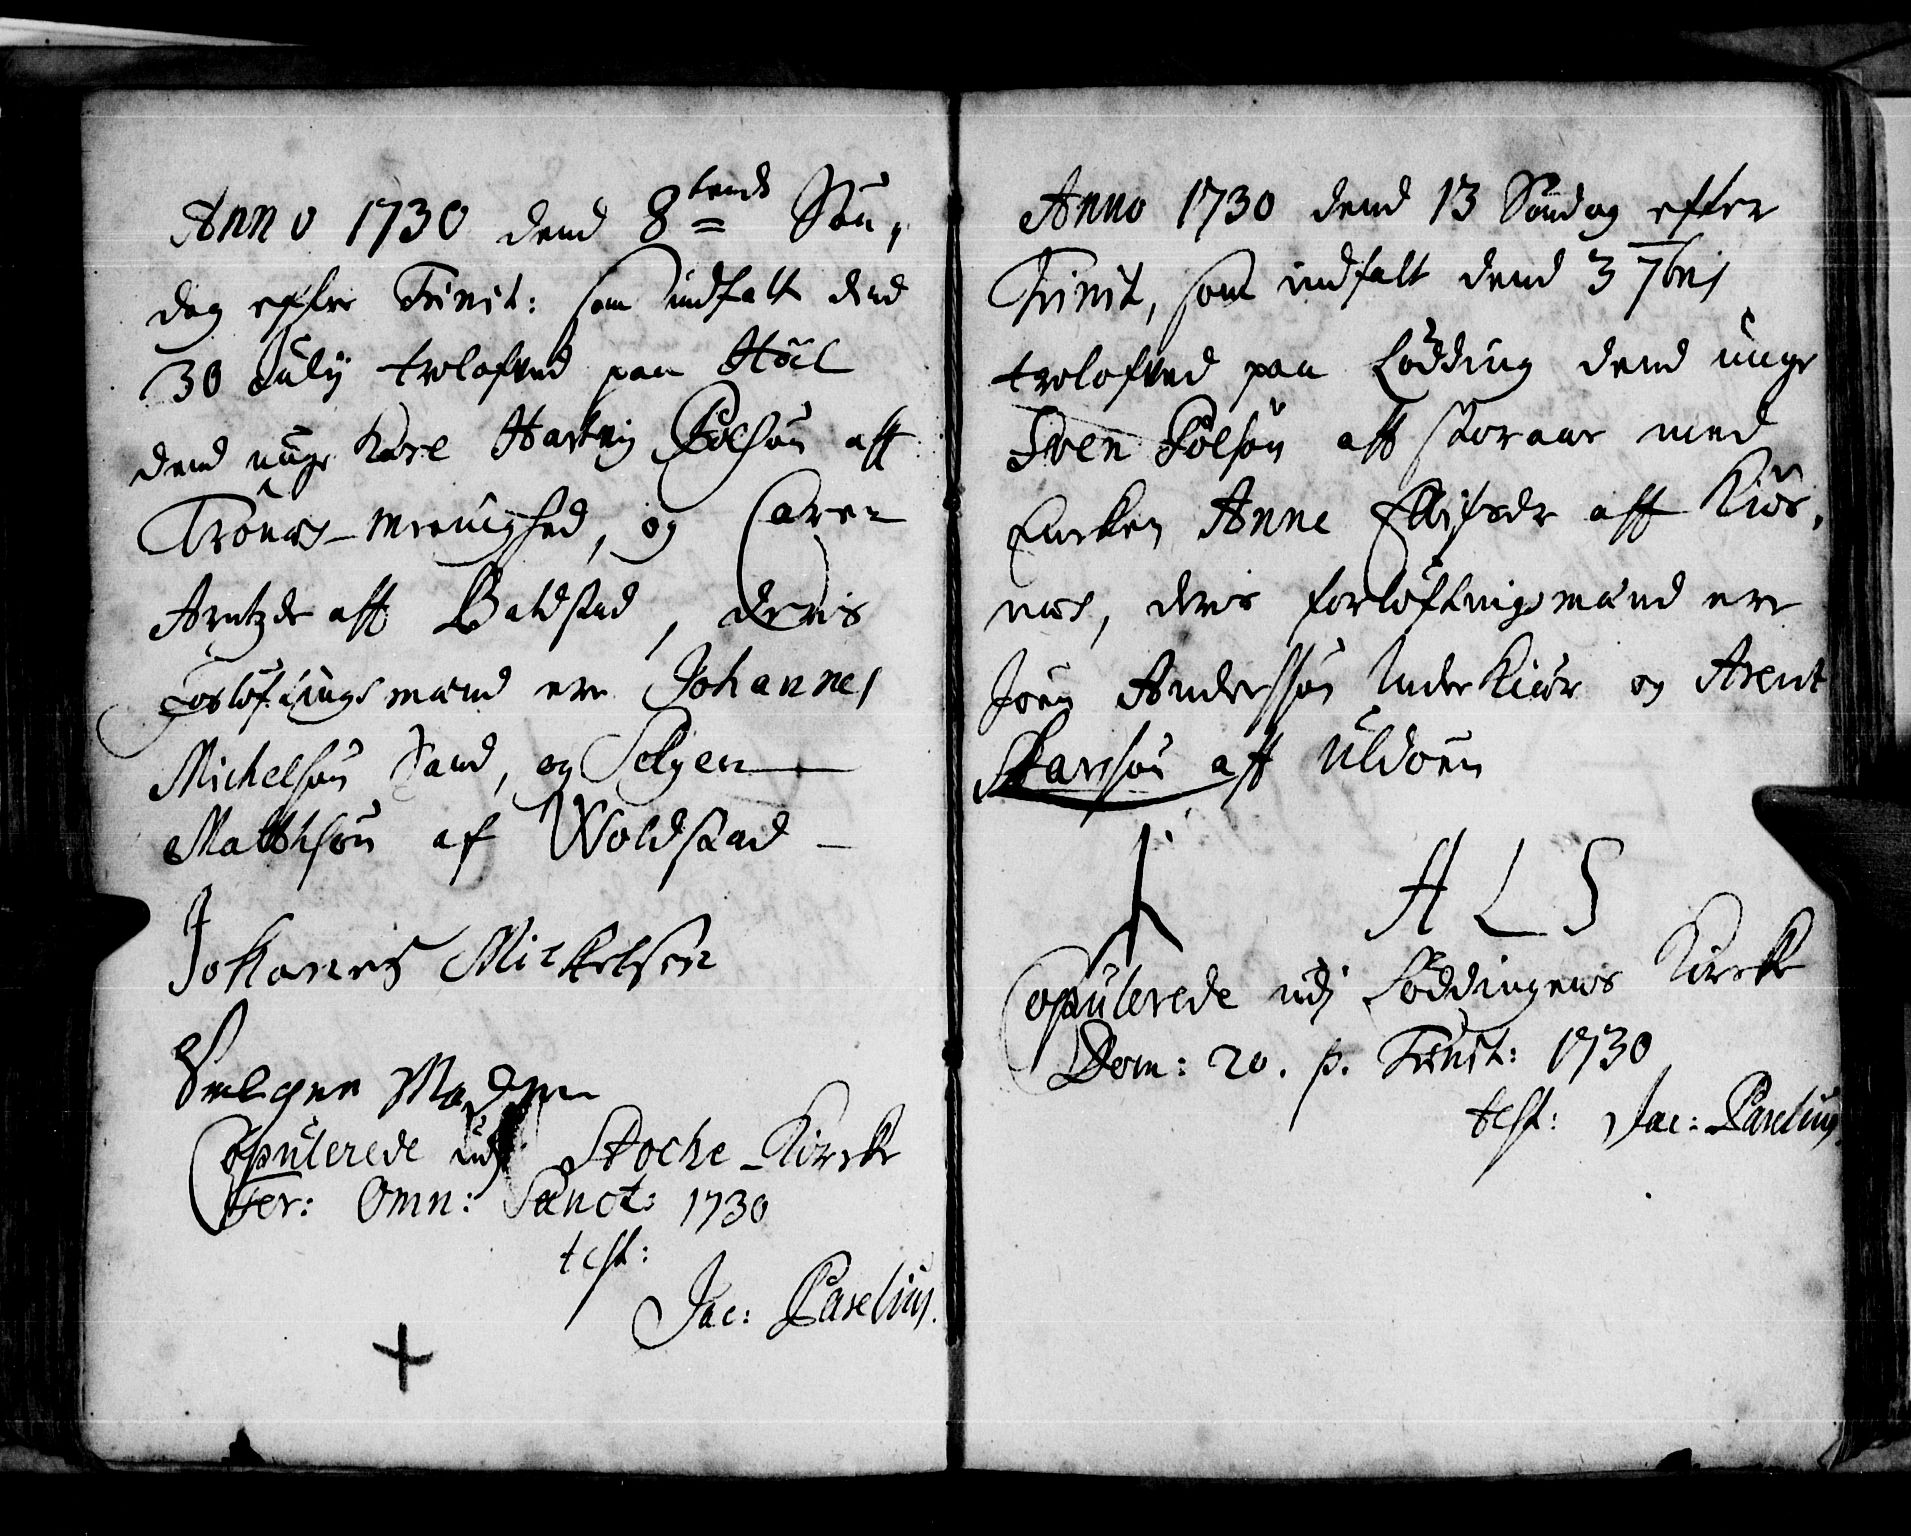 Anno 1730 dend 8tende Sön,
dag efter Trinit: som indfalt dend
30 Julij trolofved paa Höel
dend unge Karl Hartvig Polsøn aff
Trönæs-menighed, og Caren
Arntzdr aff Boldstad, deris
Forlöfningsmænd ere Johannes
Michelsøn Sand, og Selgen
Matthsøn af Woldstad
Johanes Mickelsen
Selgen Madsen
Copulerede udj Stoche-Kircke
Fer: Omn: Sanct: 1730
test:
Jac: Parelius.
Anno 1730 dend 13 Søndag efter
Trinit, som indfalt dend 3 7bris
trolofved paa Lödding dend unge
Sven Polsøn aff Storaae med
Encken Anne Ellisdr aff Kiös,
næs, deris forlöftnigsmænd ere
Joen Andersøn Inderkiær og Arent
Larsøn aff Uldöen
A L S
Copulerede udj Löddingens Kircke
Dom: 20. p. Trinit: 1730
test: Jac: Parelius.